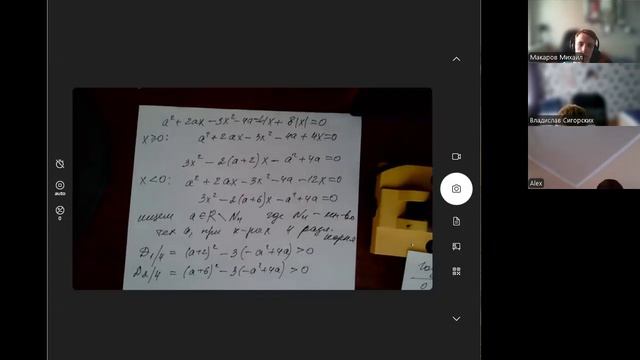 a² + 2ax - 3x² - 4a - 4x + 8|x| = 0
x ≥ 0: a² + 2ax - 3x² - 4a + 4x = 0
3x² - 2(a+2)x - a² + 4a = 0
x < 0: a² + 2ax - 3x² - 4a - 12x = 0
3x² - 2(a+6)x - a² + 4a = 0
ищем a ∈ R \ N₄ где N₄ - мн-во
тех a, при к-рых 4 разл.
корня
D₁/4 = (a+2)² - 3(-a² + 4a) > 0
D₂/4 = (a+6)² - 3(-a² + 4a) > 0
auto
Макаров Михаил
Владислав Сигорских
Alex